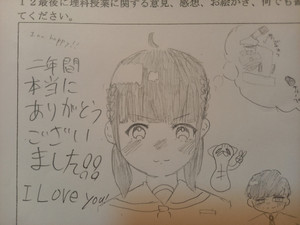 １２最後に理科授業に関する意見、感想、お絵かき、何でも書
てください。
I am happy!!
二年間
本当に
ありがとう
ござい
ました!!
I Love you!